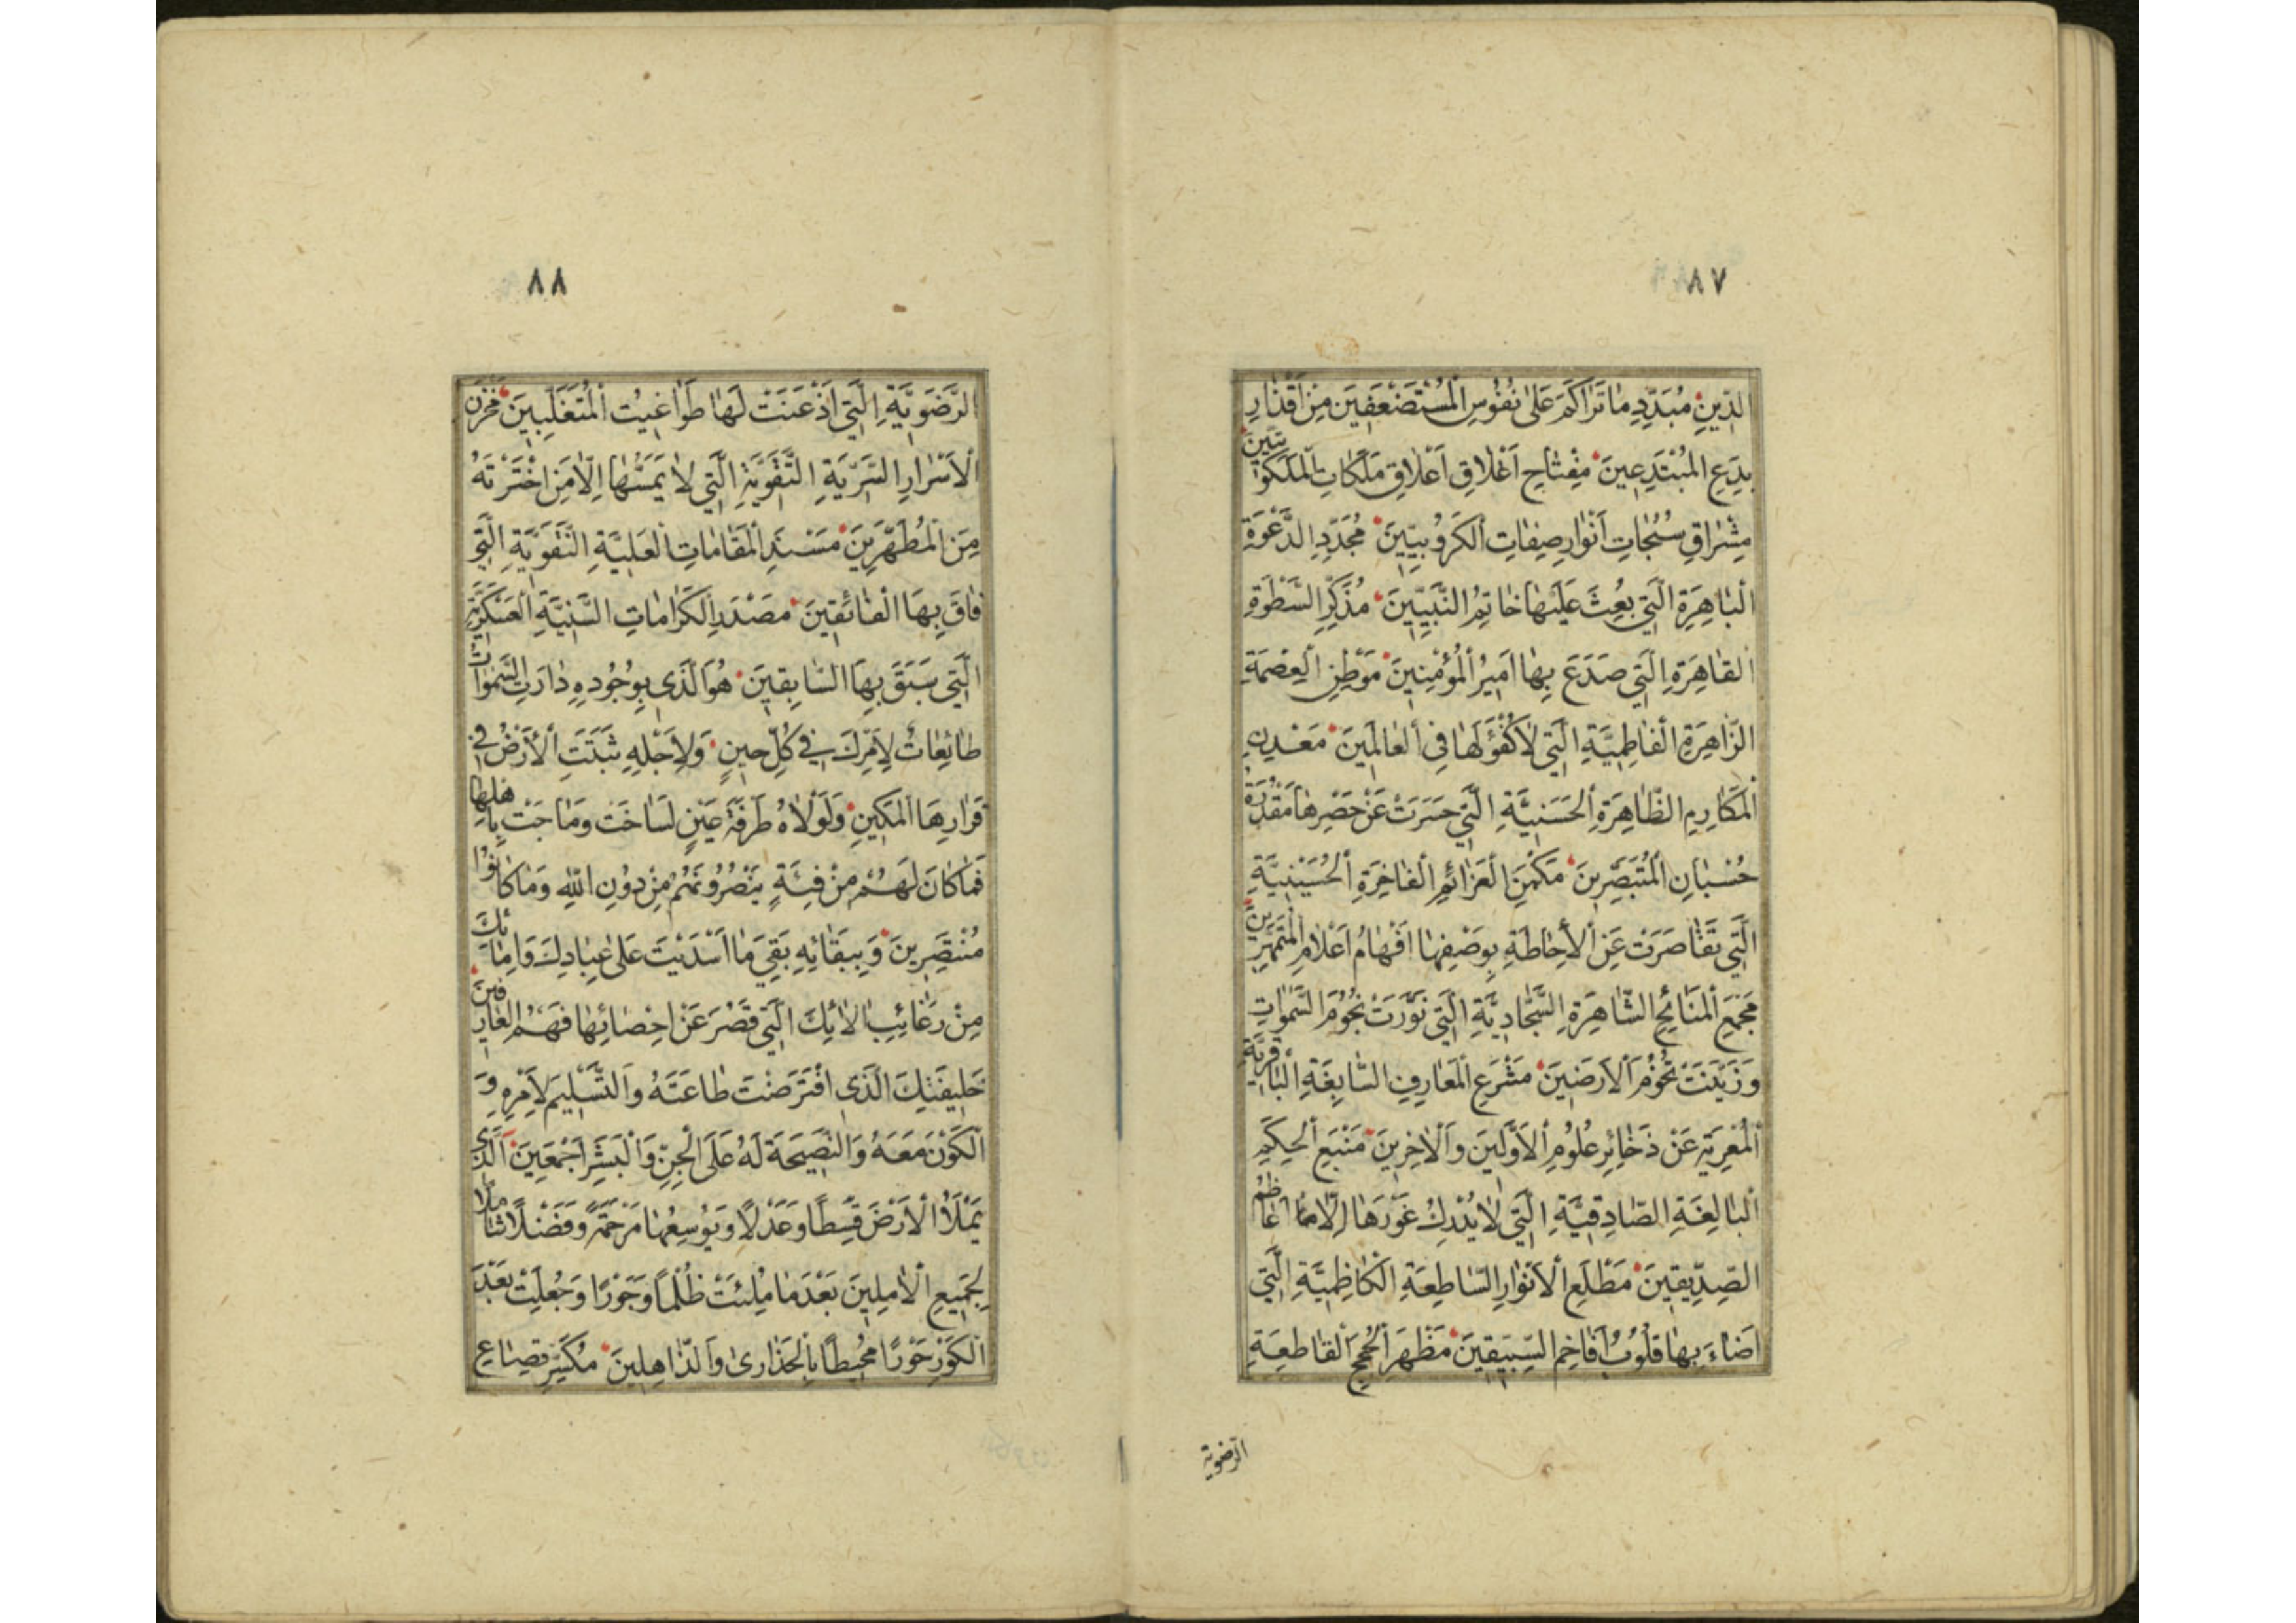 ٨٧
الدِّينِ مُبَدِّدِ مَا تَرَاكَمَ عَلٰى نُفُوسِ الْمُسْتَضْعَفِينَ مِنْ اَقْذَارِ
بِدَعِ الْمُبْتَدِعِينَ مِفْتَاحِ اَغْلَاقِ اَعْلَاقِ مَلَكَاتِ الْمَلَكُوتِيِّينَ
مِشْرَاقِ سُبُحَاتِ اَنْوَارِ صِفَاتِ الْكَرُوبِيِّينَ مُجَدِّدِ الدَّعْوَةِ
الْبَاهِرَةِ الَّتِي بُعِثَ عَلَيْهَا خَاتِمُ النَّبِيِّينَ مُذَكِّرِ السَّطْوَةِ
الْقَاهِرَةِ الَّتِي صَدَعَ بِهَا اَمِيرُ الْمُؤْمِنِينَ مَوْطِنِ الْعِصْمَةِ
الزَّاهِرَةِ الْفَاطِمِيَّةِ الَّتِي لَا كُفْؤَ لَهَا فِي الْعَالَمِينَ مَعْدِنِ
الْمَكَارِمِ الظَّاهِرَةِ الْحَسَنِيَّةِ الَّتِي حَسَرَتْ عَنْ حَصْرِهَا مَقْدُرَةُ
حُسْبَانِ الْمُتَبَصِّرِينَ مَكْمَنِ الْعَزَائِمِ الْفَاخِرَةِ الْحُسَيْنِيَّةِ
الَّتِي تَقَاصَرَتْ عَنِ الْاِحَاطَةِ بِوَصْفِهَا اَفْهَامُ اَعْلَامِ الْمُتَمَهِّرِينَ
مَجْمَعِ الْمَنَائِحِ الشَّاهِرَةِ السَّجَّادِيَّةِ الَّتِي نَوَّرَتْ نُجُومَ السَّمٰوَاتِ
وَزَيَّنَتْ تُخُومَ الْاَرَضِينَ مَشْرَعِ الْمَعَارِفِ السَّابِغَةِ الْبَاقِرِيَّةِ
الْمُعْرِبَةِ عَنْ ذَخَائِرِ عُلُومِ الْاَوَّلِينَ وَالْاٰخِرِينَ مَنْبَعِ الْحِكَمِ
الْبَالِغَةِ الصَّادِقِيَّةِ الَّتِي لَا يُدْرِكُ غَوْرَهَا اِلَّا اَعَاظِمُ
الصِّدِّيقِينَ مَطْلَعِ الْاَنْوَارِ السَّاطِعَةِ الْكَاظِمِيَّةِ الَّتِي
اَضَاءَ بِهَا قُلُوبُ اَفَاخِمِ السَّبِيقِينَ مَظْهَرِ الْحُجَجِ الْقَاطِعَةِ
الرضوية
٨٨
الرَّضَوِيَّةِ الَّتِي اَذْعَنَتْ لَهَا طَوَاغِيتُ الْمُتَغَلِّبِينَ مَخْزَنِ
الْاَسْرَارِ السَّرِيَّةِ التَّقَوِيَّةِ الَّتِي لَا يَمَسُّهَا اِلَّا مَنِ اخْتَرْتَهُ
مِنَ الْمُطَهَّرِينَ مَسْنَدِ الْمَقَامَاتِ الْعَلِيَّةِ النَّقَوِيَّةِ الَّتِي
فَاقَ بِهَا الْفَائِقِينَ مَصْدَرِ الْكَرَامَاتِ السَّنِيَّةِ الْعَسْكَرِيَّةِ
الَّتِي سَبَقَ بِهَا السَّابِقِينَ هُوَ الَّذِي بِوُجُودِهِ دَارَتِ السَّمٰوَاتُ
طَائِعَاتٌ لِاَمْرِكَ فِي كُلِّ حِينٍ وَلِاَجْلِهِ ثَبَتَتِ الْاَرْضُ فِي
قَرَارِهَا الْمَكِينِ وَلَوْلَاهُ طَرْفَةَ عَيْنٍ لَسَاخَتْ وَمَاجَتْ بِاَهْلِهَا
فَمَا كَانَ لَهُمْ مِنْ فِئَةٍ يَنْصُرُونَهُمْ مِنْ دُونِ اللّٰهِ وَمَا كَانُوا
مُنْتَصِرِينَ وَبِبَقَائِهِ بَقِيَ مَا اَسْدَيْتَ عَلٰى عِبَادِكَ وَاِمَائِكَ
مِنْ رَغَائِبِ اٰلَائِكَ الَّتِي قَصُرَ عَنْ اِحْصَائِهَا فَهْمُ الْعَارِفِينَ
خَلِيفَتِكَ الَّذِي افْتَرَضْتَ طَاعَتَهُ وَالتَّسْلِيمَ لِاَمْرِهِ وَ
الْكَوْنَ مَعَهُ وَالنَّصِيحَةَ لَهُ عَلَى الْجِنِّ وَالْبَشَرِ اَجْمَعِينَ الَّذِي
يَمْلَأُ الْاَرْضَ قِسْطًا وَعَدْلًا وَيُوسِعُهَا مَرْحَمَةً وَفَضْلًا شَامِلًا
لِجَمِيعِ الْاٰمِلِينَ بَعْدَ مَا مُلِئَتْ ظُلْمًا وَجَوْرًا وَجُعِلَتْ بَعْدَ
الْكَوْرِ حَوْرًا مُحِيطًا بِالْحَذَارٰى وَالذَّاهِلِينَ مُكَسِّرِ قِصَاعِ